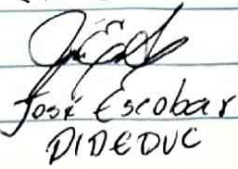 José Escobar
DIDEDUC